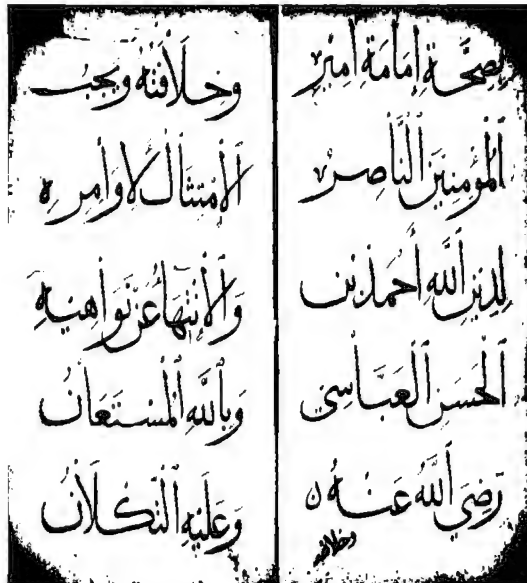 بِصِحَّةِ إِمَامَةِ أَمِيرِ
الْمُؤْمِنِينَ النَّاصِرِ
لِدِينِ اللَّهِ أَحْمَدَ بْنِ
الْحَسَنِ الْعَبَّاسِي
رَضِيَ اللَّهُ عَنْهُ
وخلافته
وَخِلَافَتِهِ وَيَجِبُ
الْاِمْتِثَالُ لِاَوَامِرِهِ
وَالْاِنْتِهَاءُ عَنْ نَوَاهِيهِ
وَبِاللَّهِ الْمُسْتَعَانُ
وَعَلَيْهِ التَّكْلَانُ